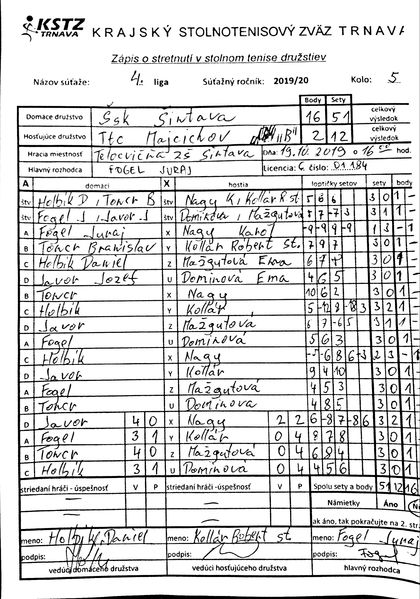 KSTZ TRNAVA KRAJSKÝ STOLNOTENISOVÝ ZVÄZ TRNAVA
Zápis o stretnutí v stolnom tenise družstiev
Názov súťaže: 4. liga Súťažný ročník: 2019/20 Kolo: 5
Body Sety
Domáce družstvo Šsk Šintava 16 51 celkový výsledok
Hosťujúce družstvo Ttc Majcichov "B" 2 12 celkový výsledok
Hracia miestnosť Telocvičňa zš Šintava Dňa: 19.10.2019 o 16 00 hod.
Hlavný rozhodca FOGEL JURAJ Licencia: C číslo: 01 184
A domáci X hostia loptičky setov sety body
štv Holbík D, Toncr B štv Nagy K, Kollár R st 3 0 1
štv Fogel J, Javor J štv Domínová, Mažgutová 3 1
A Fogel Juraj X Nagy Karol
B Toncr Branislav Y Kollár Robert st. 7 9 7 3 0 1
C Holbík Daniel Z Mažgutová Ema 6 7 3 0 1
D Javor Jozef U Domínová Ema 4 6 5 3 0 1
B Toncr X Nagy 10 6 2 3 0 1
C Holbík Y Kollár 3 2 1
D Javor Z Mažgutová 6 7 -6 5 3 1 1
A Fogel U Domínová 5 6 3 3 0 1
C Holbík X Nagy
D Javor Y Kollár 9 4 10 3 0 1
A Fogel Z Mažgutová 4 5 3 3 0 1
B Toncr U Domínova 4 8 5 3 0 1
D Javor 4 0 X Nagy 2 2 6 -8 7 -8 6 3 2 1
A Fogel 3 1 Y Kollár 0 4 8 7 8 3 0 1
B Toncr 4 0 Z Mažgutová 0 4 3 0 1
C Holbík 3 1 U Domínova 0 4 4 5 6 3 0 1
striedaní hráči - úspešnosť V P striedaní hráči - úspešnosť V P Spolu sety a body 51 12 16
Námietky Áno
ak áno, tak pokračujte na 2. str
meno: Holbík Daniel meno: Kollár Robert st meno: Fogel Juraj
podpis: podpis: podpis: Fogel
vedúci domáceho družstva vedúci hosťujúceho družstva hlavný rozhodca